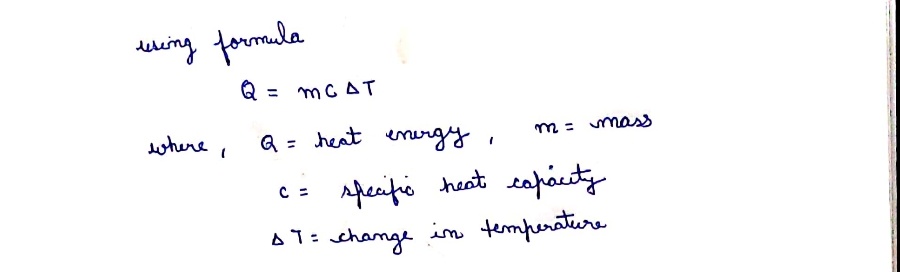 using formula
Q = mC ΔT
where, Q = heat energy, m = mass
c = specific heat capacity
ΔT = change in temperature